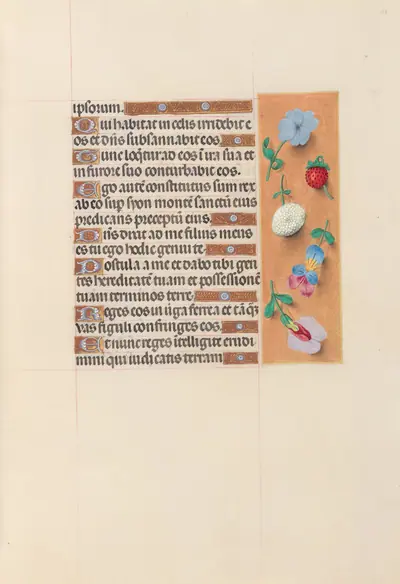 ipsorum.
Qui habitat in celis irridebit e
os et dñs subsannabit eos.
Tunc loq̃tur ad eos ĩ ira sua et
in furore suo conturbabit eos.
Ego autẽ constitutus sum rex
ab eo sup syon montẽ sanctũ eius
predicans preceptũ eius.
Dñs dixit ad me filius meus
es tu ego hodie genui te.
Postula a me et dabo tibi gen
tes hereditatẽ tuam et possessionẽ
tuam terminos terre.
Reges eos in ũga ferrea et tãq̃
vas figuli confringes eos.
Et nunc reges ĩtelligite erudi
mini qui iudicatis terram